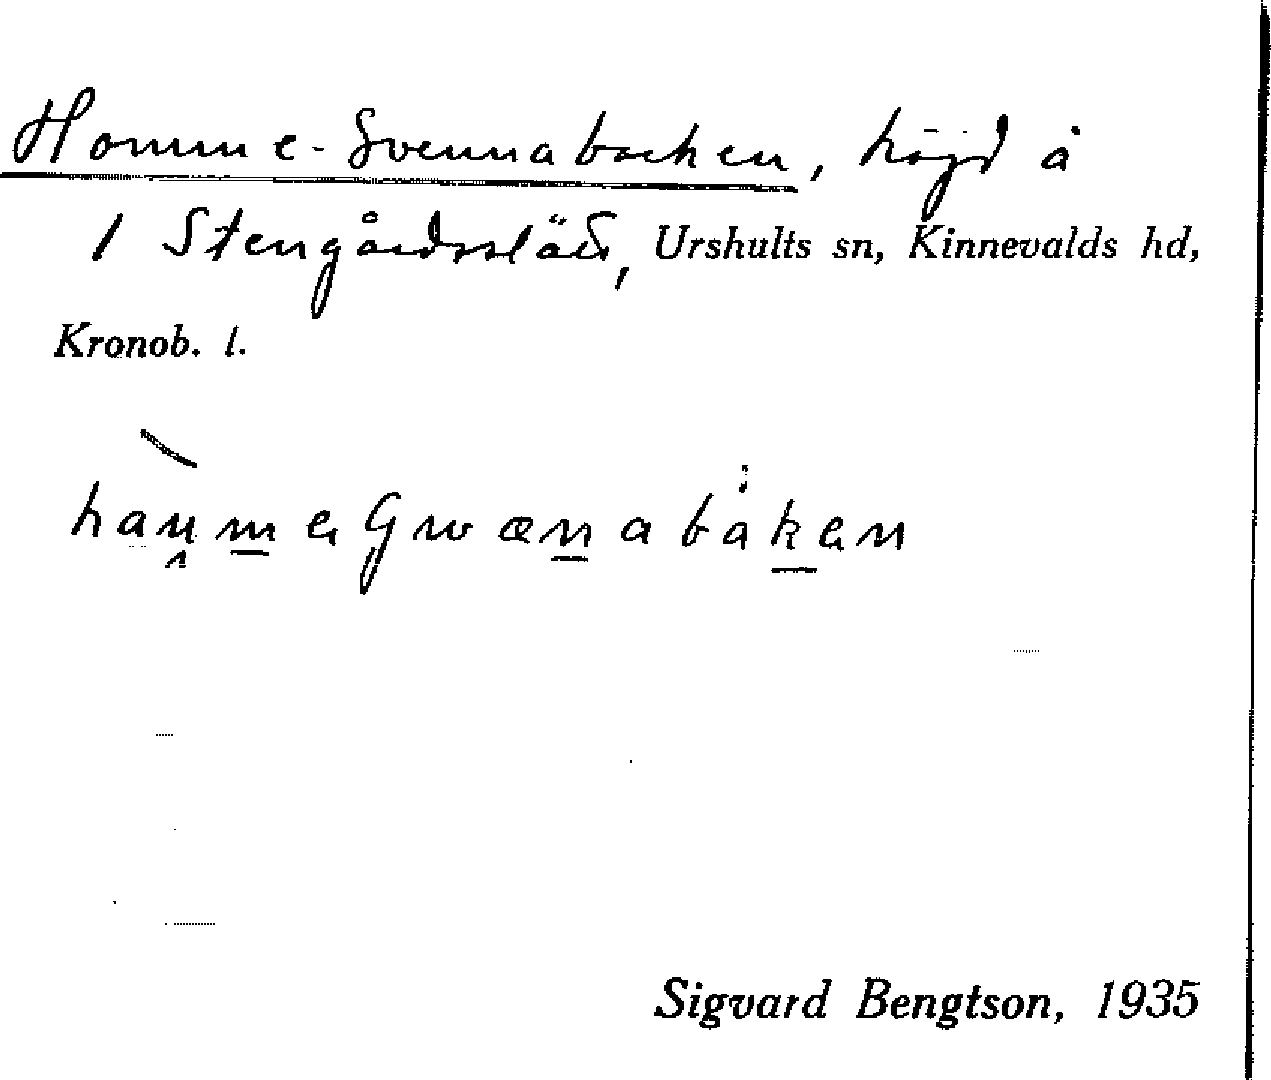 Homme-Svennabacken, höjd å
1 Stengårdsslätt, Urshults sn, Kinnevalds hd,
Kronob. l.
Sigvard Bengtson, 1935